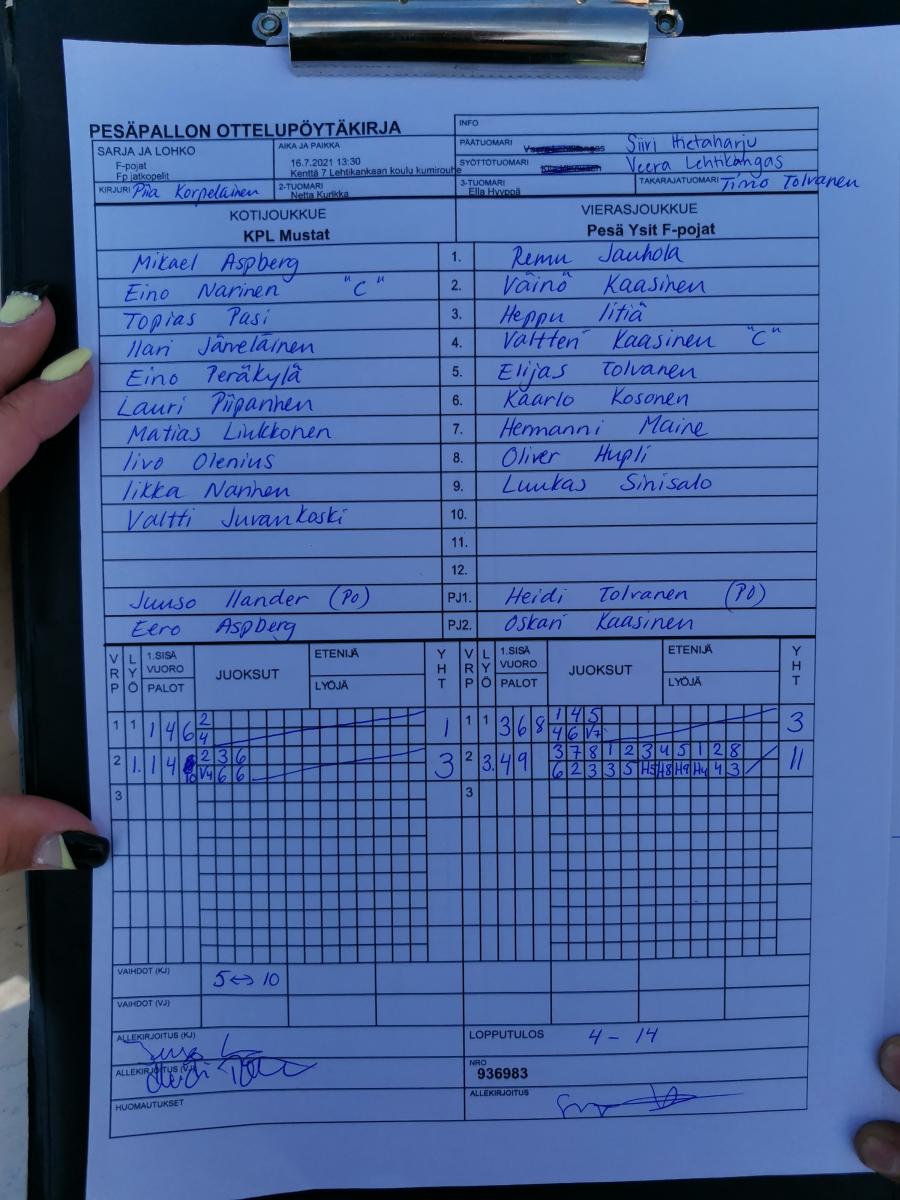 PESÄPALLON OTTELUPÖYTÄKIRJA
INFO
SARJA JA LOHKO
F-pojat
Fp jatkopelit
AIKA JA PAIKKA
16.7.2021 13:30
Kenttä 7 Lehtikankaan koulu kumirouhe
PÄÄTUOMARI Siiri Hietaharju
SYÖTTÖTUOMARI Veera Lehtikangas
KIRJURI Piia Korpelainen
2-TUOMARI
Netta Kurikka
3-TUOMARI
Ella Hyyppä
TAKARAJATUOMARI Timo Tolvanen
KOTIJOUKKUE VIERASJOUKKUE
KPL Mustat Pesä Ysit F-pojat
Mikael Aspberg 1. Remu Jauhola
Eino Narinen "C" 2. Väinö Kaasinen
Topias Pasi 3. Heppu Iitiä
Ilari Järveläinen 4. Valtteri Kaasinen "C"
Eino Peräkylä 5. Elijas Tolvanen
Lauri Piipannen 6. Kaarlo Kosonen
Matias Liukkonen 7. Hermanni Maine
Iivo Olenius 8. Oliver Hupli
Iikka Narinen 9. Luukas Sinisalo
Valtti Juvankoski 10.
11.
12.
Juuso Ilander (PO) PJ1. Heidi Tolvanen (PO)
Eero Aspberg PJ2. Oskari Kaasinen
VRP LYÖ 1.SISÄ VUORO PALOT JUOKSUT ETENIJÄ LYÖJÄ YHT VRP LYÖ 1.SISÄ VUORO PALOT JUOKSUT ETENIJÄ LYÖJÄ YHT
1 1 1 4 6 2 1 1 1 3 6 8 1 4 5 3
4 4 6 V7
2 1. 1 4 10 2 3 6 3 2 3. 4 9 3 7 8 1 2 3 4 5 1 2 8 11
V4 6 6 6 2 3 3 5 H5 H8 H9 H4 4 3
3 3
VAIHDOT (KJ) 5↔10
VAIHDOT (VJ)
ALLEKIRJOITUS (KJ)
LOPPUTULOS 4 - 14
ALLEKIRJOITUS (VJ)
NRO
936983
HUOMAUTUKSET
ALLEKIRJOITUS